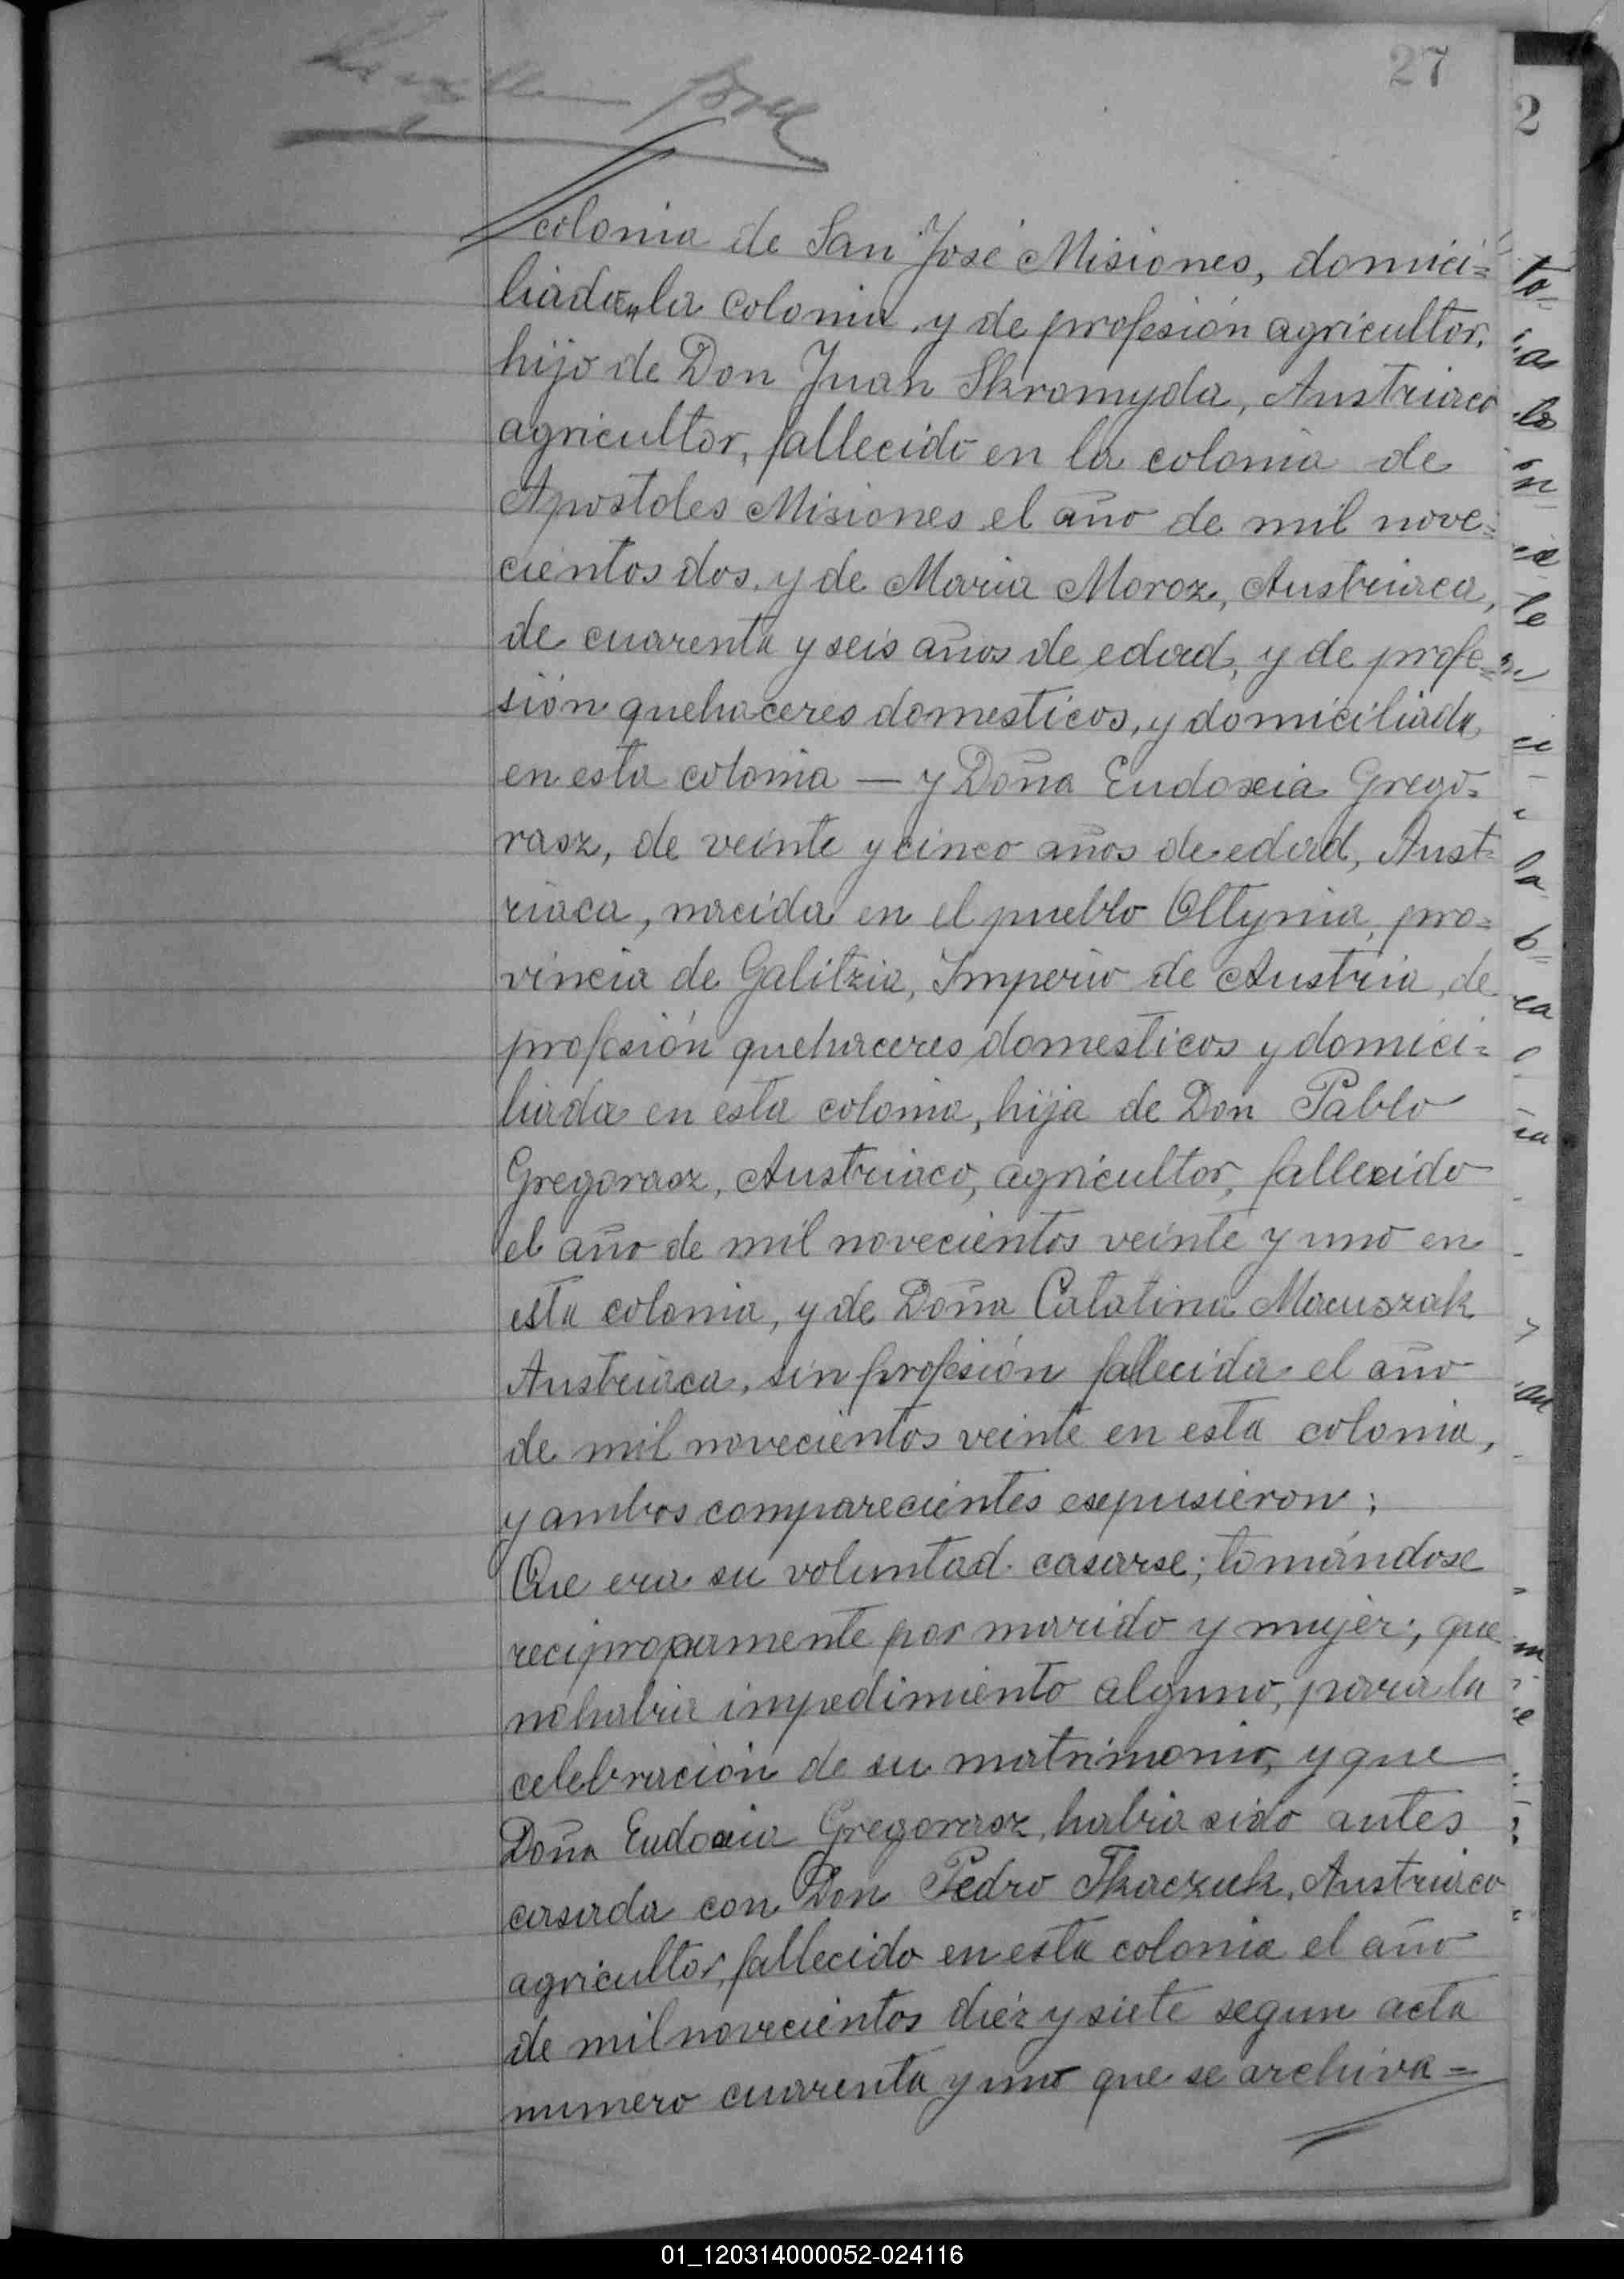 27
2
colonia de San José Misiones, domici=
liado en la colonia, y de profesión agricultor,
hijo de Don Juan Skromyda, Austriaco
agricultor, fallecido en la colonia de
Apostoles Misiones el año de mil nove=
cientos dos, y de Maria Moroz, Austriaca,
de cuarenta y seis años de edad, y de profe=
sión quehaceres domesticos, y domiciliada
en esta colonia — y Doña Eudoxia Grego=
rasz, de veinte y cinco años de edad, Aust=
riaca, nacida en el pueblo Ottynia, pro=
vincia de Galitzia, Imperio de Austria, de
profesión quehaceres domesticos y domici=
liada en esta colonia, hija de Don Pablo
Gregorasz, Austriaco, agricultor, fallecido
el año de mil novecientos veinte y uno en
esta colonia, y de Doña Catatina Macuszak
Austriaca, sin profesión fallecida el año
de mil novecientos veinte en esta colonia,
y ambos comparecientes expusieron:
Que era su voluntad casarse; tomándose
reciprocamente por marido y mujer; que
no habia impedimiento alguno, para la
celebración de su matrimonio, y que
Doña Eudoxia Gregorasz, habia sido antes
casada con Don Pedro Tkaczuk, Austriaco
agricultor, fallecido en esta colonia el año
de mil novecientos diéz y siete segun acta
numero cuarenta y uno que se archiva =
01_120314000052-024116